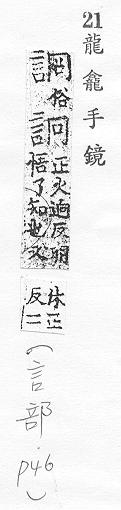 21龍龕手鏡
俗詗正火迥反明
悟了知也又
休正
反二
(言部.
p46)